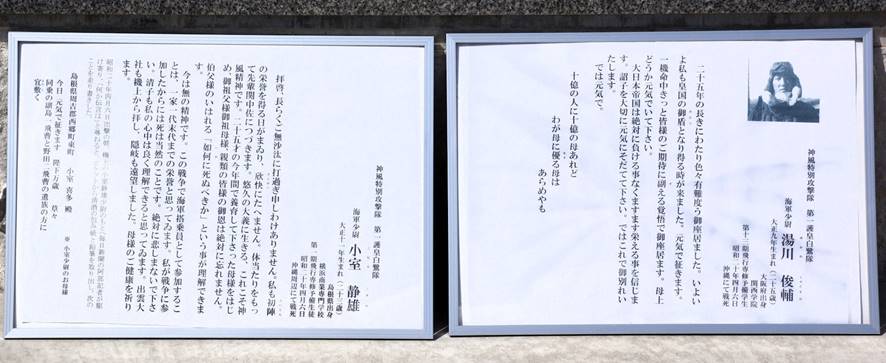 神風特別攻撃隊 第一護皇白鷺隊
海軍少尉 湯川 俊輔
大正九年生まれ(二十五歳)
大阪府出身
関西学院
第十三期飛行専修予備学生
昭和二十年四月六日
沖縄周辺にて戦死
二十五年の長きにわたり色々有難度う御座居ました。いよい
よ私も皇国の御盾となり得る時が来ました。元気で征きます。
一機命中きっと皆様のご期待に副える覚悟で御座居ます。母上
どうか元気でいて下さい。
大日本帝国は絶対に負ける事なくますます栄える事を信じま
す。詔子を大切に元気にそだてて下さい、ではこれで御別れい
たします。
では元気で。
十億の人に十億の母あれど
わが母に優る母は
あらめやも
神風特別攻撃隊 第一護皇白鷺隊
海軍少尉 小室 静雄
大正十一年生まれ(二十三歳)
島根県出身
横浜専門学校
第一期飛行専修予備生徒
昭和二十年四月六日
沖縄周辺にて戦死
拝啓、長らくご無沙汰に打過ぎ申しわけありません。私も初陣
の栄誉を得る日がまゐり、欣快にたへません。体当たりをもっ
て先輩関中佐につづきます。悠久の大義に生きる、これこそ神
風精神です。二十五才の今年間で養育して下さった母様をはじ
め、御祖父様御祖母様、親類の皆様の御恩は絶対に忘れません。
伯父様のいはれる「如何に死ぬべきか」という事が理解できま
す。
今は無の精神です。この戦争で海軍搭乗員として参加するこ
とは、一家一代末代までの栄誉と思ってゐます。私が戦争に参
加したからには死は当然のことです。絶対に悲しまないで下さ
い。清子も私の心中は良く理解できると思ってゐます。出雲大
社も機上から拝し、隠岐も遠望しました。母様のご健康を祈り
ます。
島根県周吉郡西郷町東町 小室 喜多 殿
※ 小室少尉のお母様
今日 元気で征きます 陛下万歳 草々
同乗の副島一飛曹と野田二飛曹の遺族の方に
宜敷く